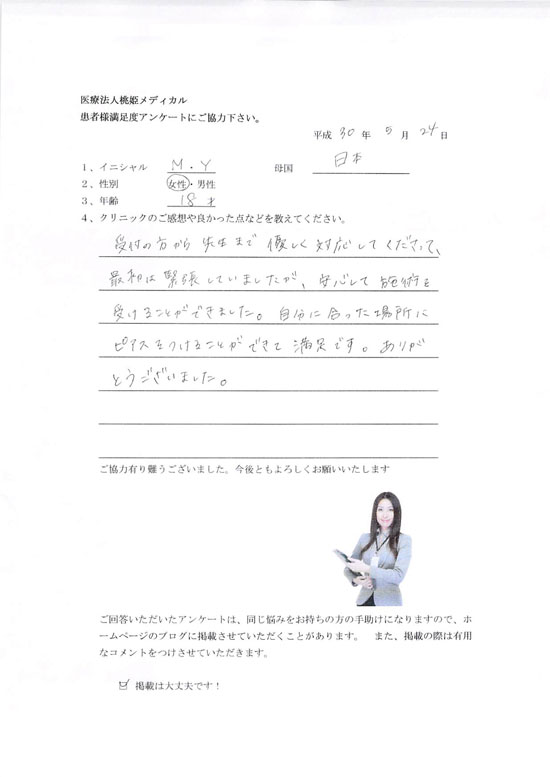 医療法人桃姫メディカル
患者様満足度アンケートにご協力下さい。
平成 30 年 5 月 24 日
1、イニシャル M・Y 母国 日本
2、性別 女性・男性
3、年齢 18才
4、クリニックのご感想や良かった点などを教えてください。
受付の方から 先生まで 優しく対応してくださって、
最初は緊張していましたが、安心して 施術を
受けることができました。自分に合った場所に
ピアスをつけることができて 満足です。ありが
とうございました。
ご協力有り難うございました。今後ともよろしくお願いいたします
ご回答いただいたアンケートは、同じ悩みをお持ちの方の手助けになりますので、ホ
ームページのブログに掲載させていただくことがあります。 また、掲載の際は有用
なコメントをつけさせていただきます。
☑ 掲載は大丈夫です！